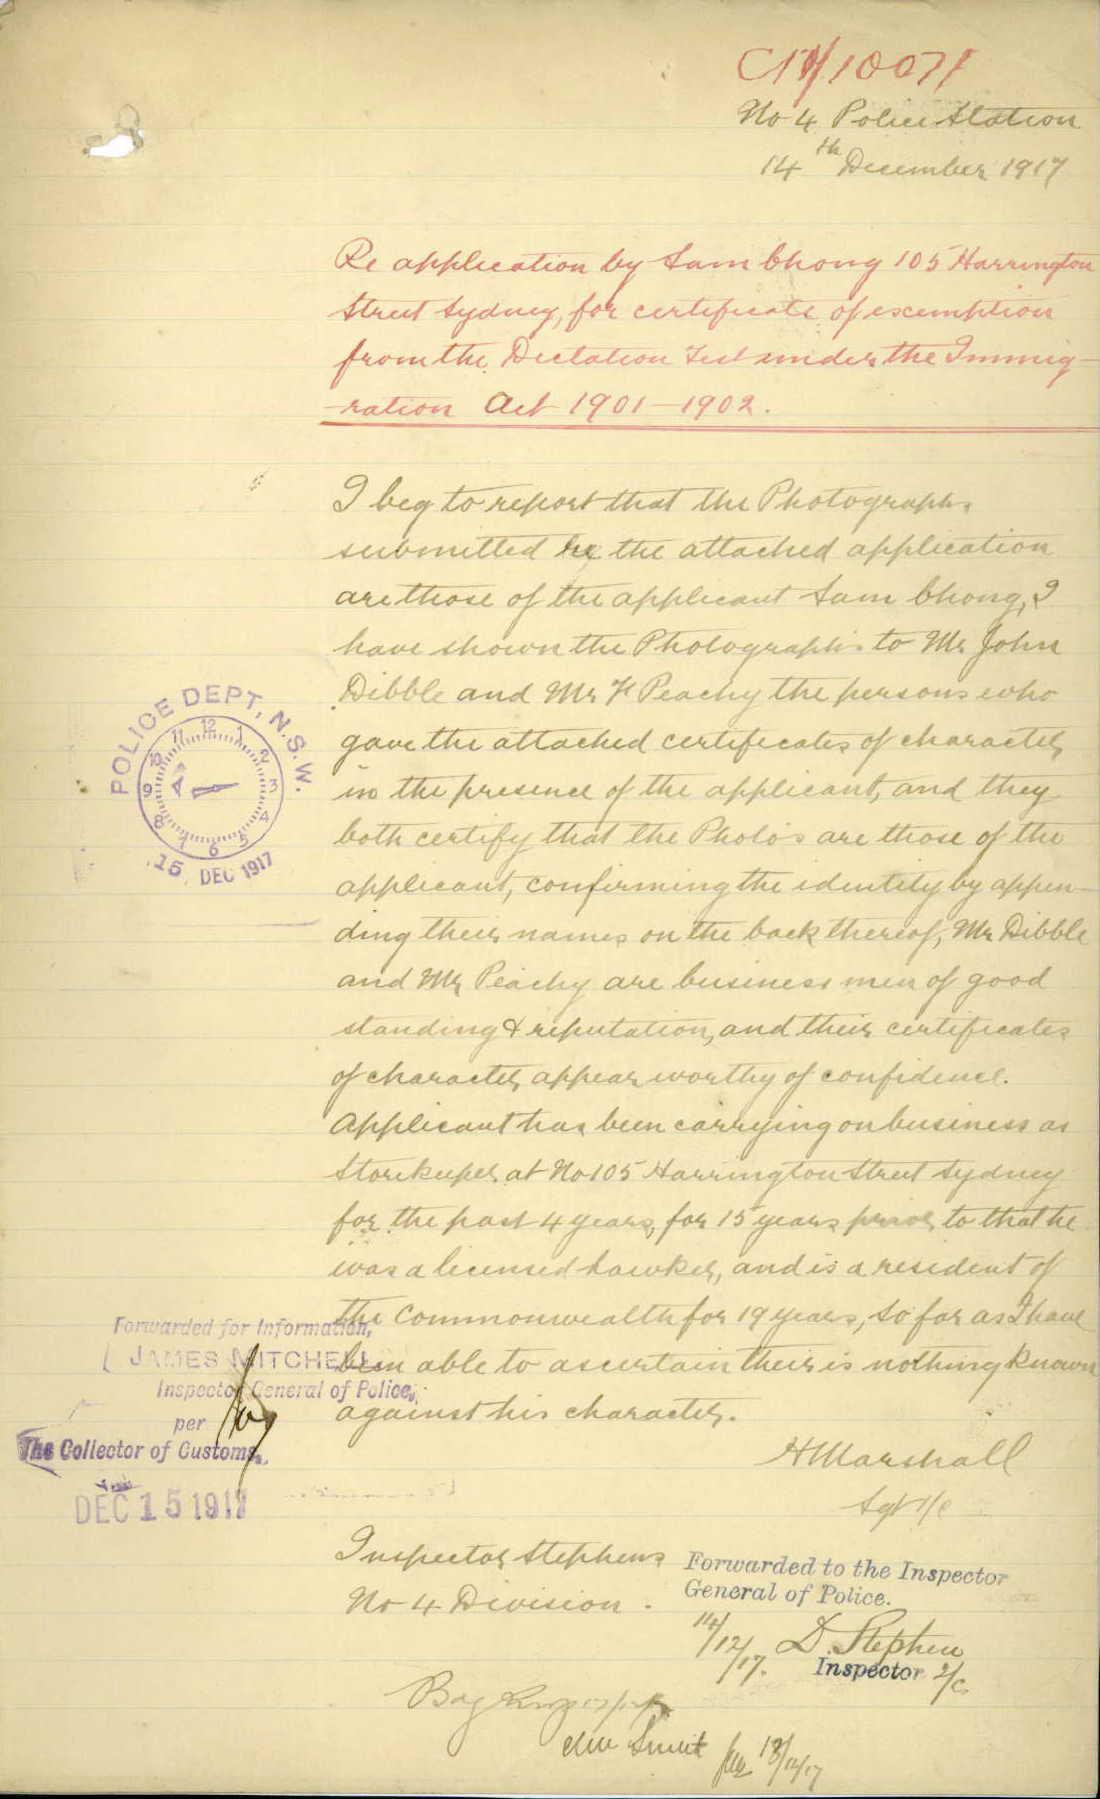 C17/10071
No 4 Police Station
14th December 1917
Re application by Sam Chong 105 Harrington
Street Sydney, for certificate of exemption
from the Dictation Test under the Immig-
-ration Act 1901-1902.
I beg to report that the Photographs
submitted the attached application
are those of the applicant Sam Chong, I
have shown the Photographs to Mr John
Dibble and Mr F Peachy the persons who
gave the attached certificates of character,
in the presence of the applicant, and they
both certify that the Photo's are those of the
applicant, confirming the identity by appen-
ding their names on the back thereof, Mr Dibble
and Mr Peachy are business men of good
standing & reputation, and their certificates
of character, appear worthy of confidence.
Applicant has been carrying on business as
Storekeeper at No 105 Harrington Street Sydney
for the past 4 years, for 15 years prior to that he
was a licensed hawker, and is a resident of
the Commonwealth for 19 years, so far as I have
been able to ascertain their is nothing known
against his character.
H Marshall
Sgt 1/c
POLICE DEPT, N.S.W.
12 1 2 3 4 5 6 7 8 9 10 11
15 DEC 1917
Forwarded for Information,
JAMES MITCHELL
Inspector General of Police,
per
The Collector of Customs.
DEC 15 1917
Inspector Stephens
No 4 Division.
Forwarded to the Inspector
General of Police.
14/12/17. D. Stephen
Inspector 2/c.
18/12/17